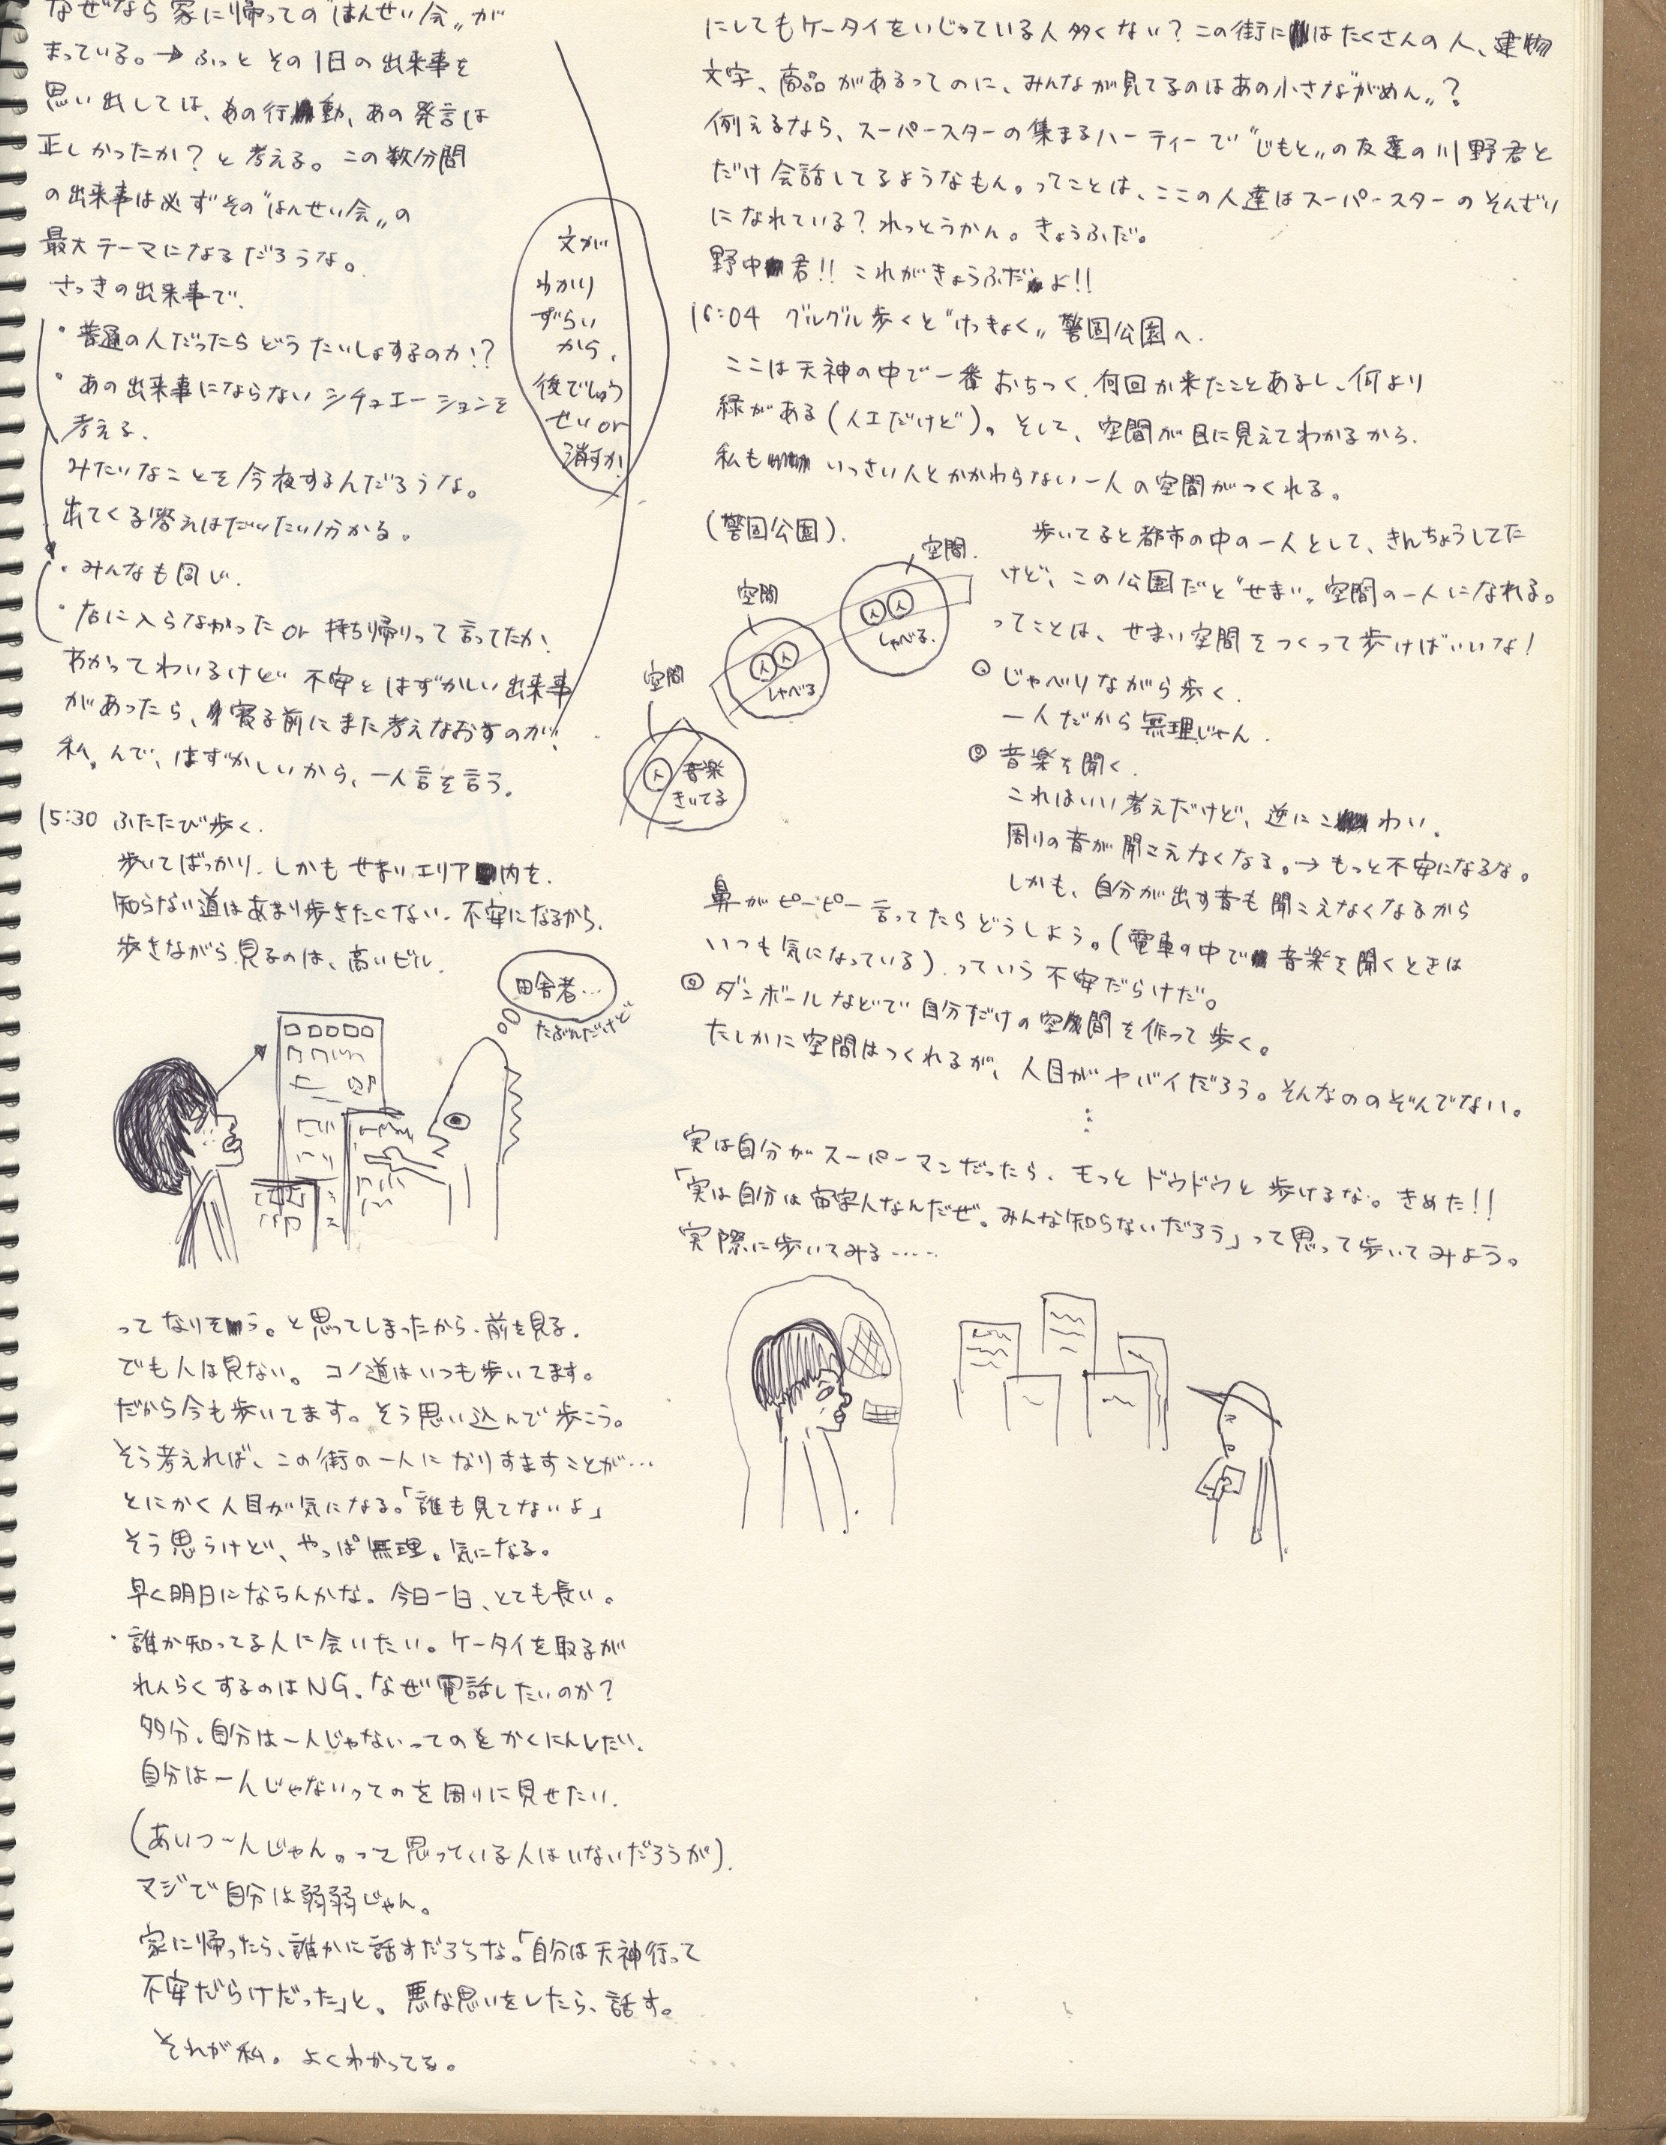 なぜなら家に帰っての"はんせい会"が
まっている。→ ふっと その1日の出来事を
思い出しては、あの行動、あの発言は
正しかったか?と考える。この数分間
の出来事は必ずその"はんせい会"の
最大テーマになるだろうな。
さっきの出来事で、
・普通の人だったらどうたいしょするのか!?
・あの出来事にならないシチュエーションを
考える、
みたいなことを今夜するんだろうな。
出てくる答えはだいたい分かる。
・みんなも同じ、
・店に入らなかった or 持ち帰りって言ってたか、
わかってわいるけど 不安とはずかしい出来事
があったら、寝る前にまた考えなおすのが、
私。んで、はずかしいから、一人言を言う。
文が
わかり
ずらい
から、
後でしゅう
せい or
消すか、
15:30 ふたたび歩く、
歩いてばっかり、しかも せまいエリア内を、
知らない道はあまり歩きたくない、不安になるから、
歩きながら見るのは、高いビル、
田舎者…
たぶんだけど
ってなりそう。と思ってしまったから、前を見る、
でも人は見ない。コノ道はいつも歩いてます。
だから今も歩いてます。そう思い込んで歩こう。
そう考えれば、この街の一人になりすますことが…
とにかく人目が気になる。「誰も見てないよ」
そう思うけど、やっぱ無理。気になる。
早く明日にならんかな。今日一日、とても長い。
・誰か知ってる人に会いたい。ケータイを取るが
れんらくするのはNG、なぜ電話したいのか?
多分、自分は一人じゃないってのをかくにんしたい、
自分は一人じゃないってのを周りに見せたい、
(あいつ一人じゃん。って思っている人はいないだろうが)、
マジで自分は弱弱じゃん。
家に帰ったら、誰かに話すだろうな。「自分は天神行って
不安だらけだった」と。悪な思いをしたら、話す。
それが私。よくわかってる。
にしてもケータイをいじっている人多くない?この街にはたくさんの人、建物
文字、商品があるってのに、みんなが見てるのはあの小さな"がめん"?
例えるなら、スーパースターの集まるパーティーで"じもと"の友達の川野君と
だけ会話してるようなもん。ってことは、ここの人達はスーパースターのそんざい
になれている?れっとうかん。きょうふだ。
野中君!! これがきょうふだよ!!
16:04 グルグル歩くと"けっきょく"警固公園へ、
ここは天神の中で一番おちつく、何回か来たことあるし、何より
緑がある(人工だけど)。そして、空間が目に見えてわかるから、
私も いっさい人とかかわらない一人の空間がつくれる。
(警固公園)、
空間
空間
空間
人
人人
人人
音楽
きいてる
しゃべる
しゃべる、
歩いてると都市の中の一人として、きんちょうしてた
けど、この公園だと"せまい"空間の一人になれる。
ってことは、せまい空間をつくって歩けばいいな!
◎ じゃべりながら歩く、
一人だから無理じゃん、
◎ 音楽を聞く、
これはいい考えだけど、逆にこわい、
周りの音が聞こえなくなる。→ もっと不安になるな。
しかも、自分が出す音も聞こえなくなるから
鼻がピーピー言ってたらどうしよう。(電車の中で音楽を聞くときは
いつも気になっている)、っていう不安だらけだ。
◎ ダンボールなどで自分だけの空間を作って歩く。
たしかに空間はつくれるが、人目がヤバイだろう。そんなののぞんでない。
⋮
実は自分がスーパーマンだったら、もっとドウドウと歩けるな。きめた!!
「実は自分は宙宇人なんだぜ。みんな知らないだろう」って思って歩いてみよう。
実際に歩いてみる……